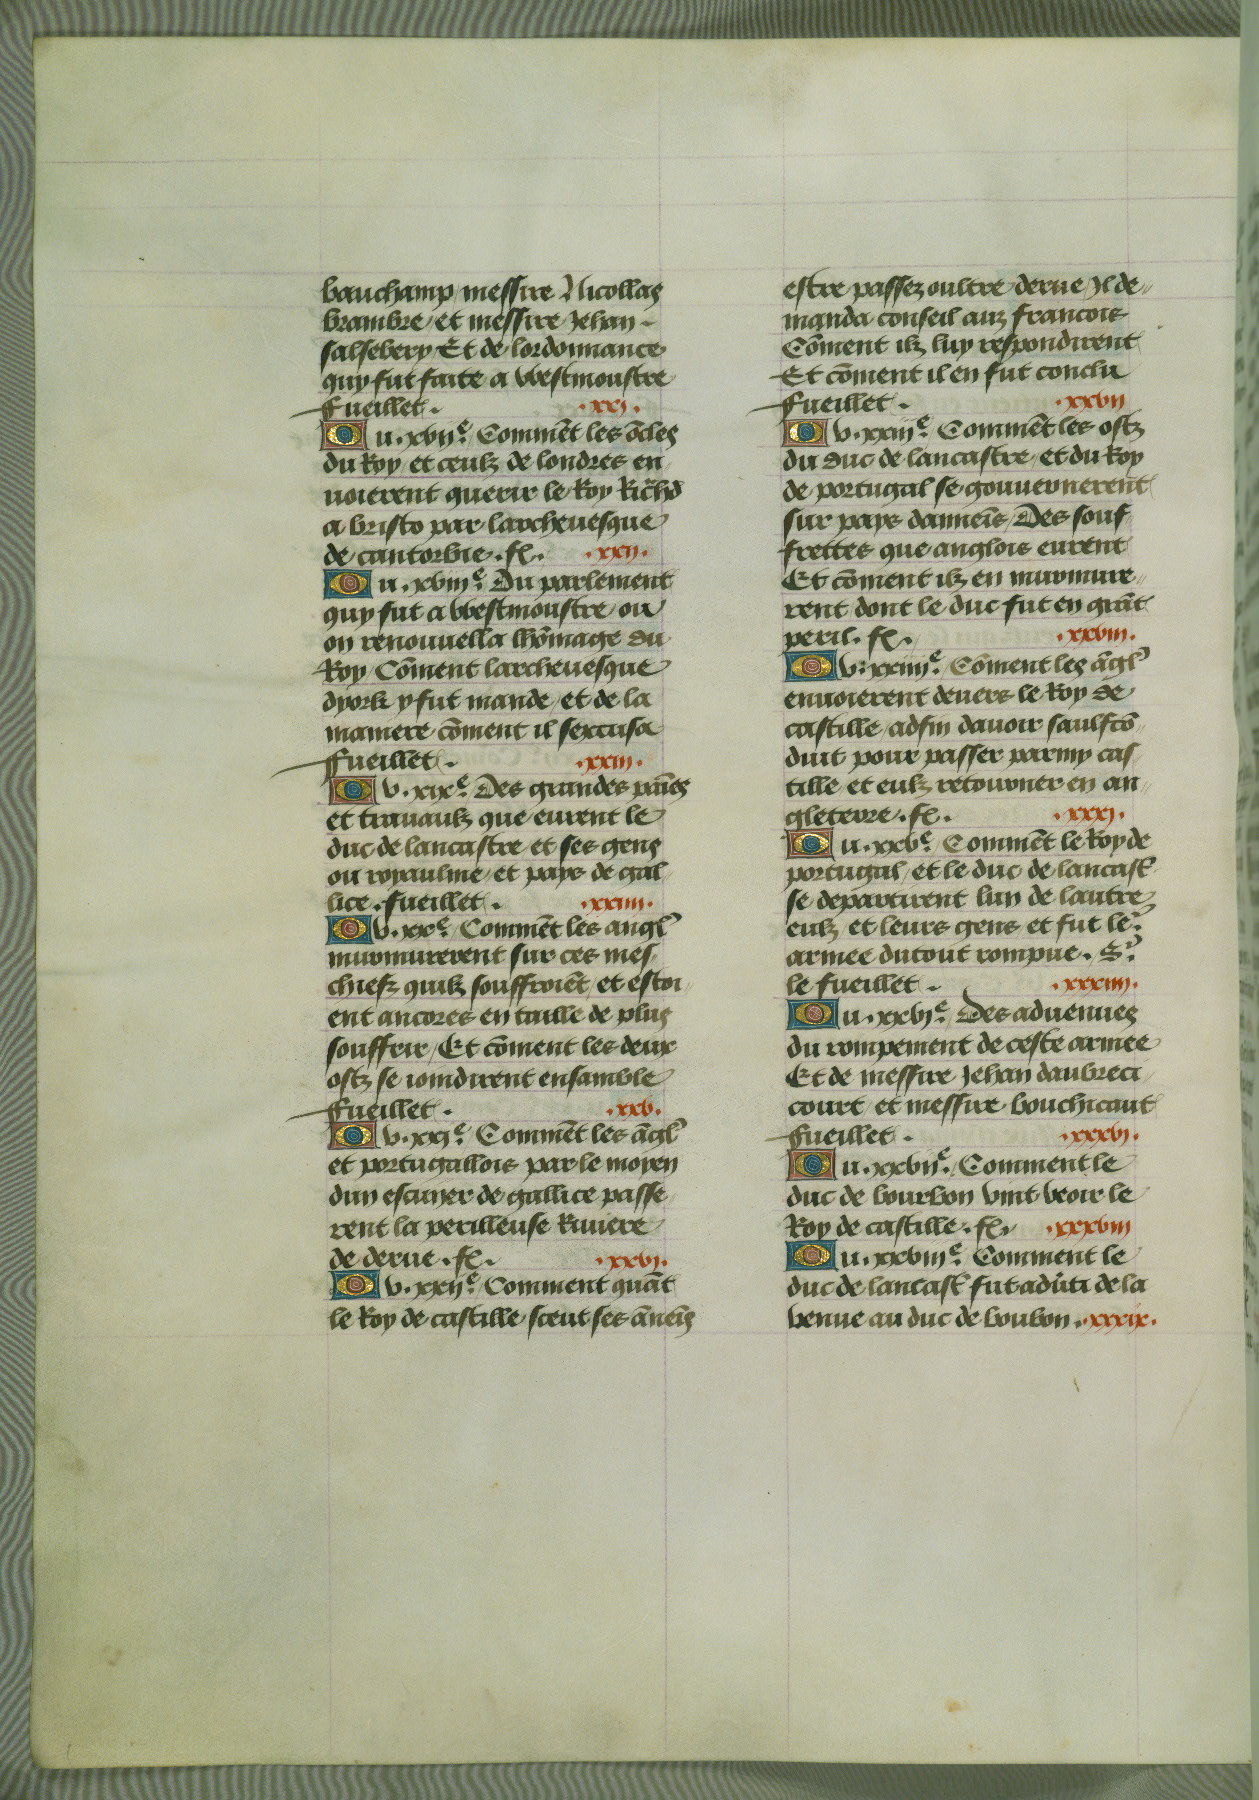 bauchamp, messire Nicollas
brambre, et messire Jehan
salsebery Et de lordonnance
quy fut faite a Westmoustre
Fueillet. .xxi.
Du .xvije. Comme͂t les o͂cles
du Roy et ceulz de londres en
uoierent querir le Roy Rich͂d
a bristo par larcheuesque
de cantorbie. fe͂. .xxij.
Du .xviije. Du parlement
quy fut a Westmoustre, ou
on renouuella lho͂mage du
Roy Co͂ment larcheuesque
dyork y fut mande, et de la
maniere co͂ment il sexcusa
Fueillet. .xxiij.
Du .xixe. Des grandes pai͂es
et trauaulz que eurent le
duc de lancastre, et ses gens
ou royaulme, et pays de gal
lice. fueillet. .xxiiij.
Du .xxe. Comme͂t les angl͛
murmurerent sur ces mes
chiefz quilz souffroie͂t, et estoi
ent ancores en taille de plus
souffrir, Et co͂ment les deux
ostz se ioindirent ensamble
Fueillet. .xxv.
Du .xxie. Comme͂t les a͂gl͛
et portugallois par le moyen
dun escuyer de gallice passe
rent la perilleuse Riuiere
de derue. fe͂. .xxvi.
Du .xxije. Comment qua͂t
le Roy de castille sceut ses a͂nemis
estre passez oultre derue, Il de
manda conseil aux francois
Co͂ment ilz luy respondirent
Et co͂ment il en fut conclu
Fueillet. .xxvij
Du .xxiije. Comme͂t les ostz
du duc de lancastre, et du Roy
de portugal se gouuernerent
sur pays da͂nemis, Des souf
frettes que anglois eurent
Et co͂ment ilz en murmure
rent dont le duc fut en gra͂t
peril. fe͂. .xxviij.
Du .xxiiije. Co͂ment les a͂gl͛
enuoierent deuers le Roy de
castille, adfin dauoir saulfco͂
duit pour passer parmy cas
tille, et eulz retourner en an
gleterre. fe͂. .xxxi.
Du .xxve. Comme͂t le Roy de
portugal, et le duc de lancast͛
se departirent lun de lautre
eulz, et leurs gens et fut le͛
armee du tout rompue. S͛.
le fueillet. .xxxiiij.
Du .xxvie. Des aduenues
du rompement de ceste armee
Et de messire Jehan daubreci
court, et messire bouchicaut
Fueillet. .xxxvi.
Du .xxvije. Comment le
duc de bourbon vint veoir le
Roy de castille. fe͂. .xxxviij
Du .xxviije. Comment le
duc de lancast͛ fut adu͛ti de la
venue au duc de bourbon. .xxxix.